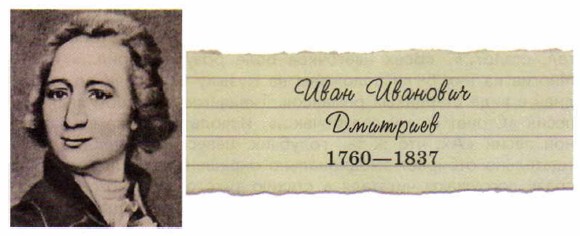 Иван Иванович
Дмитриев
1760—1837